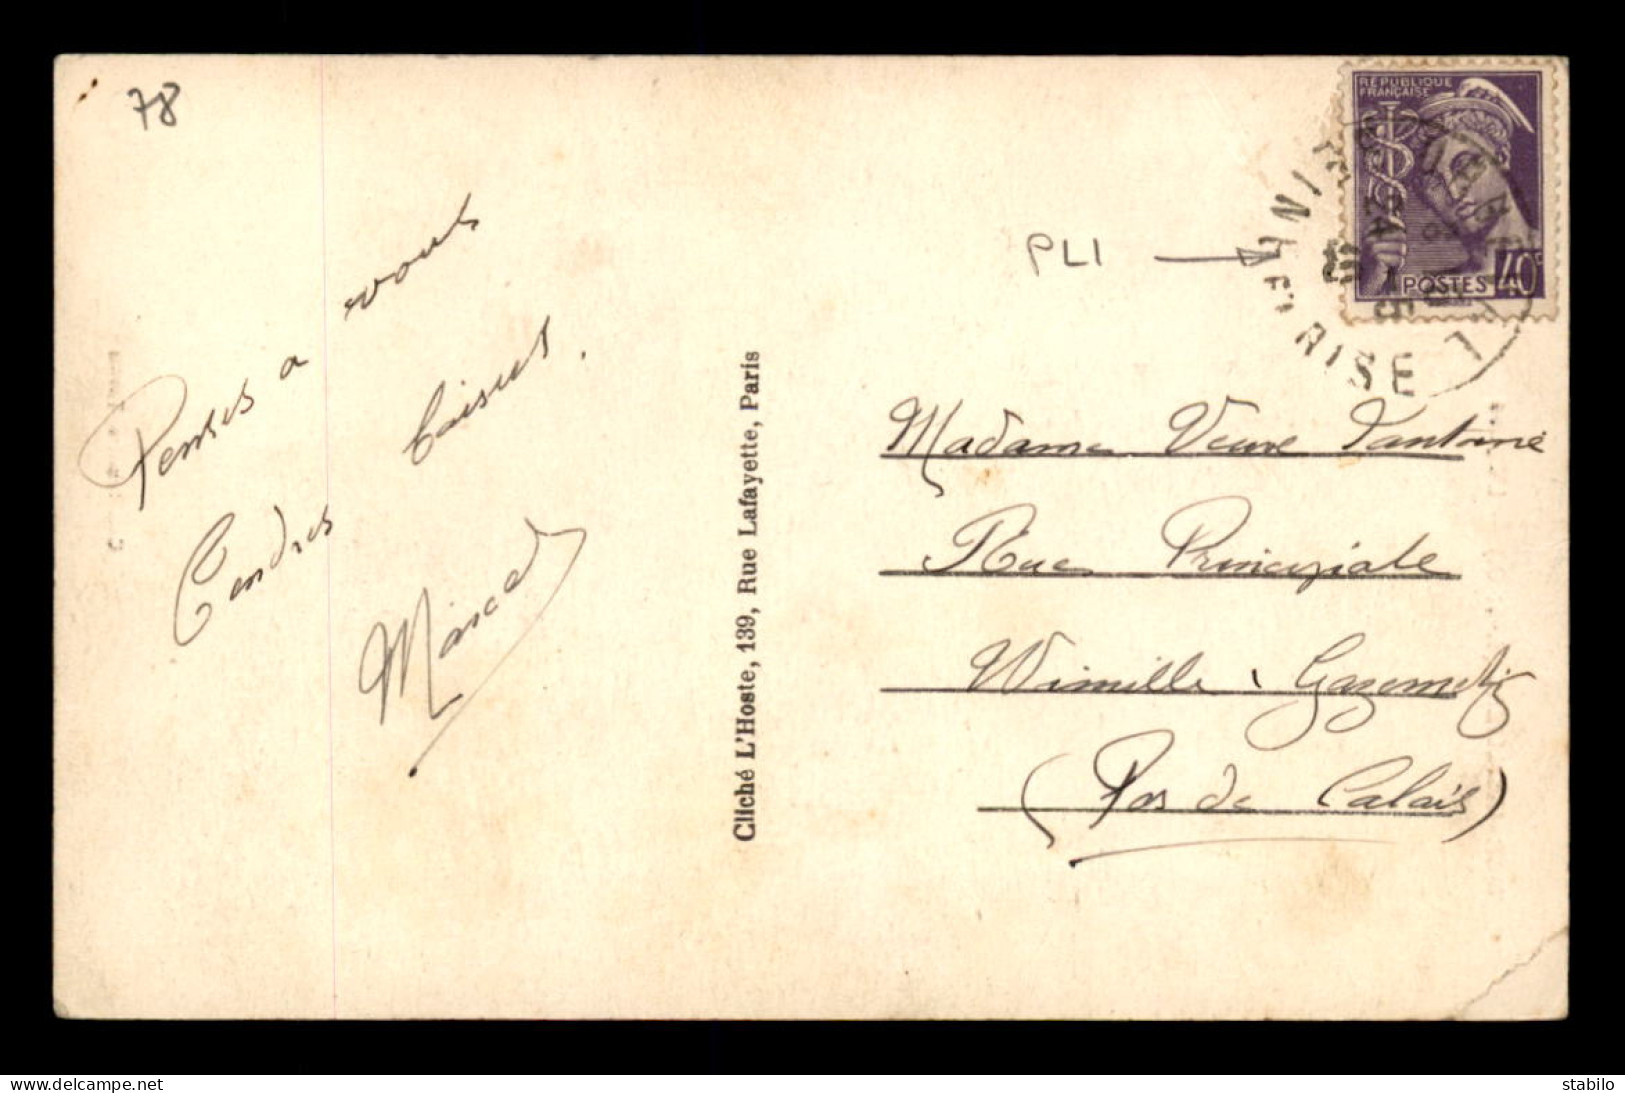 78
Penses a vous
Tendres baisers.
Marcel
Cliché L'Hoste, 139, Rue Lafayette, Paris
RÉPUBLIQUE
FRANÇAISE
POSTES 40c
PLI
Madame Veuve Vantorine
Rue Principale
Wimille
(Pas de Calais)
www.delcampe.net
stabilo